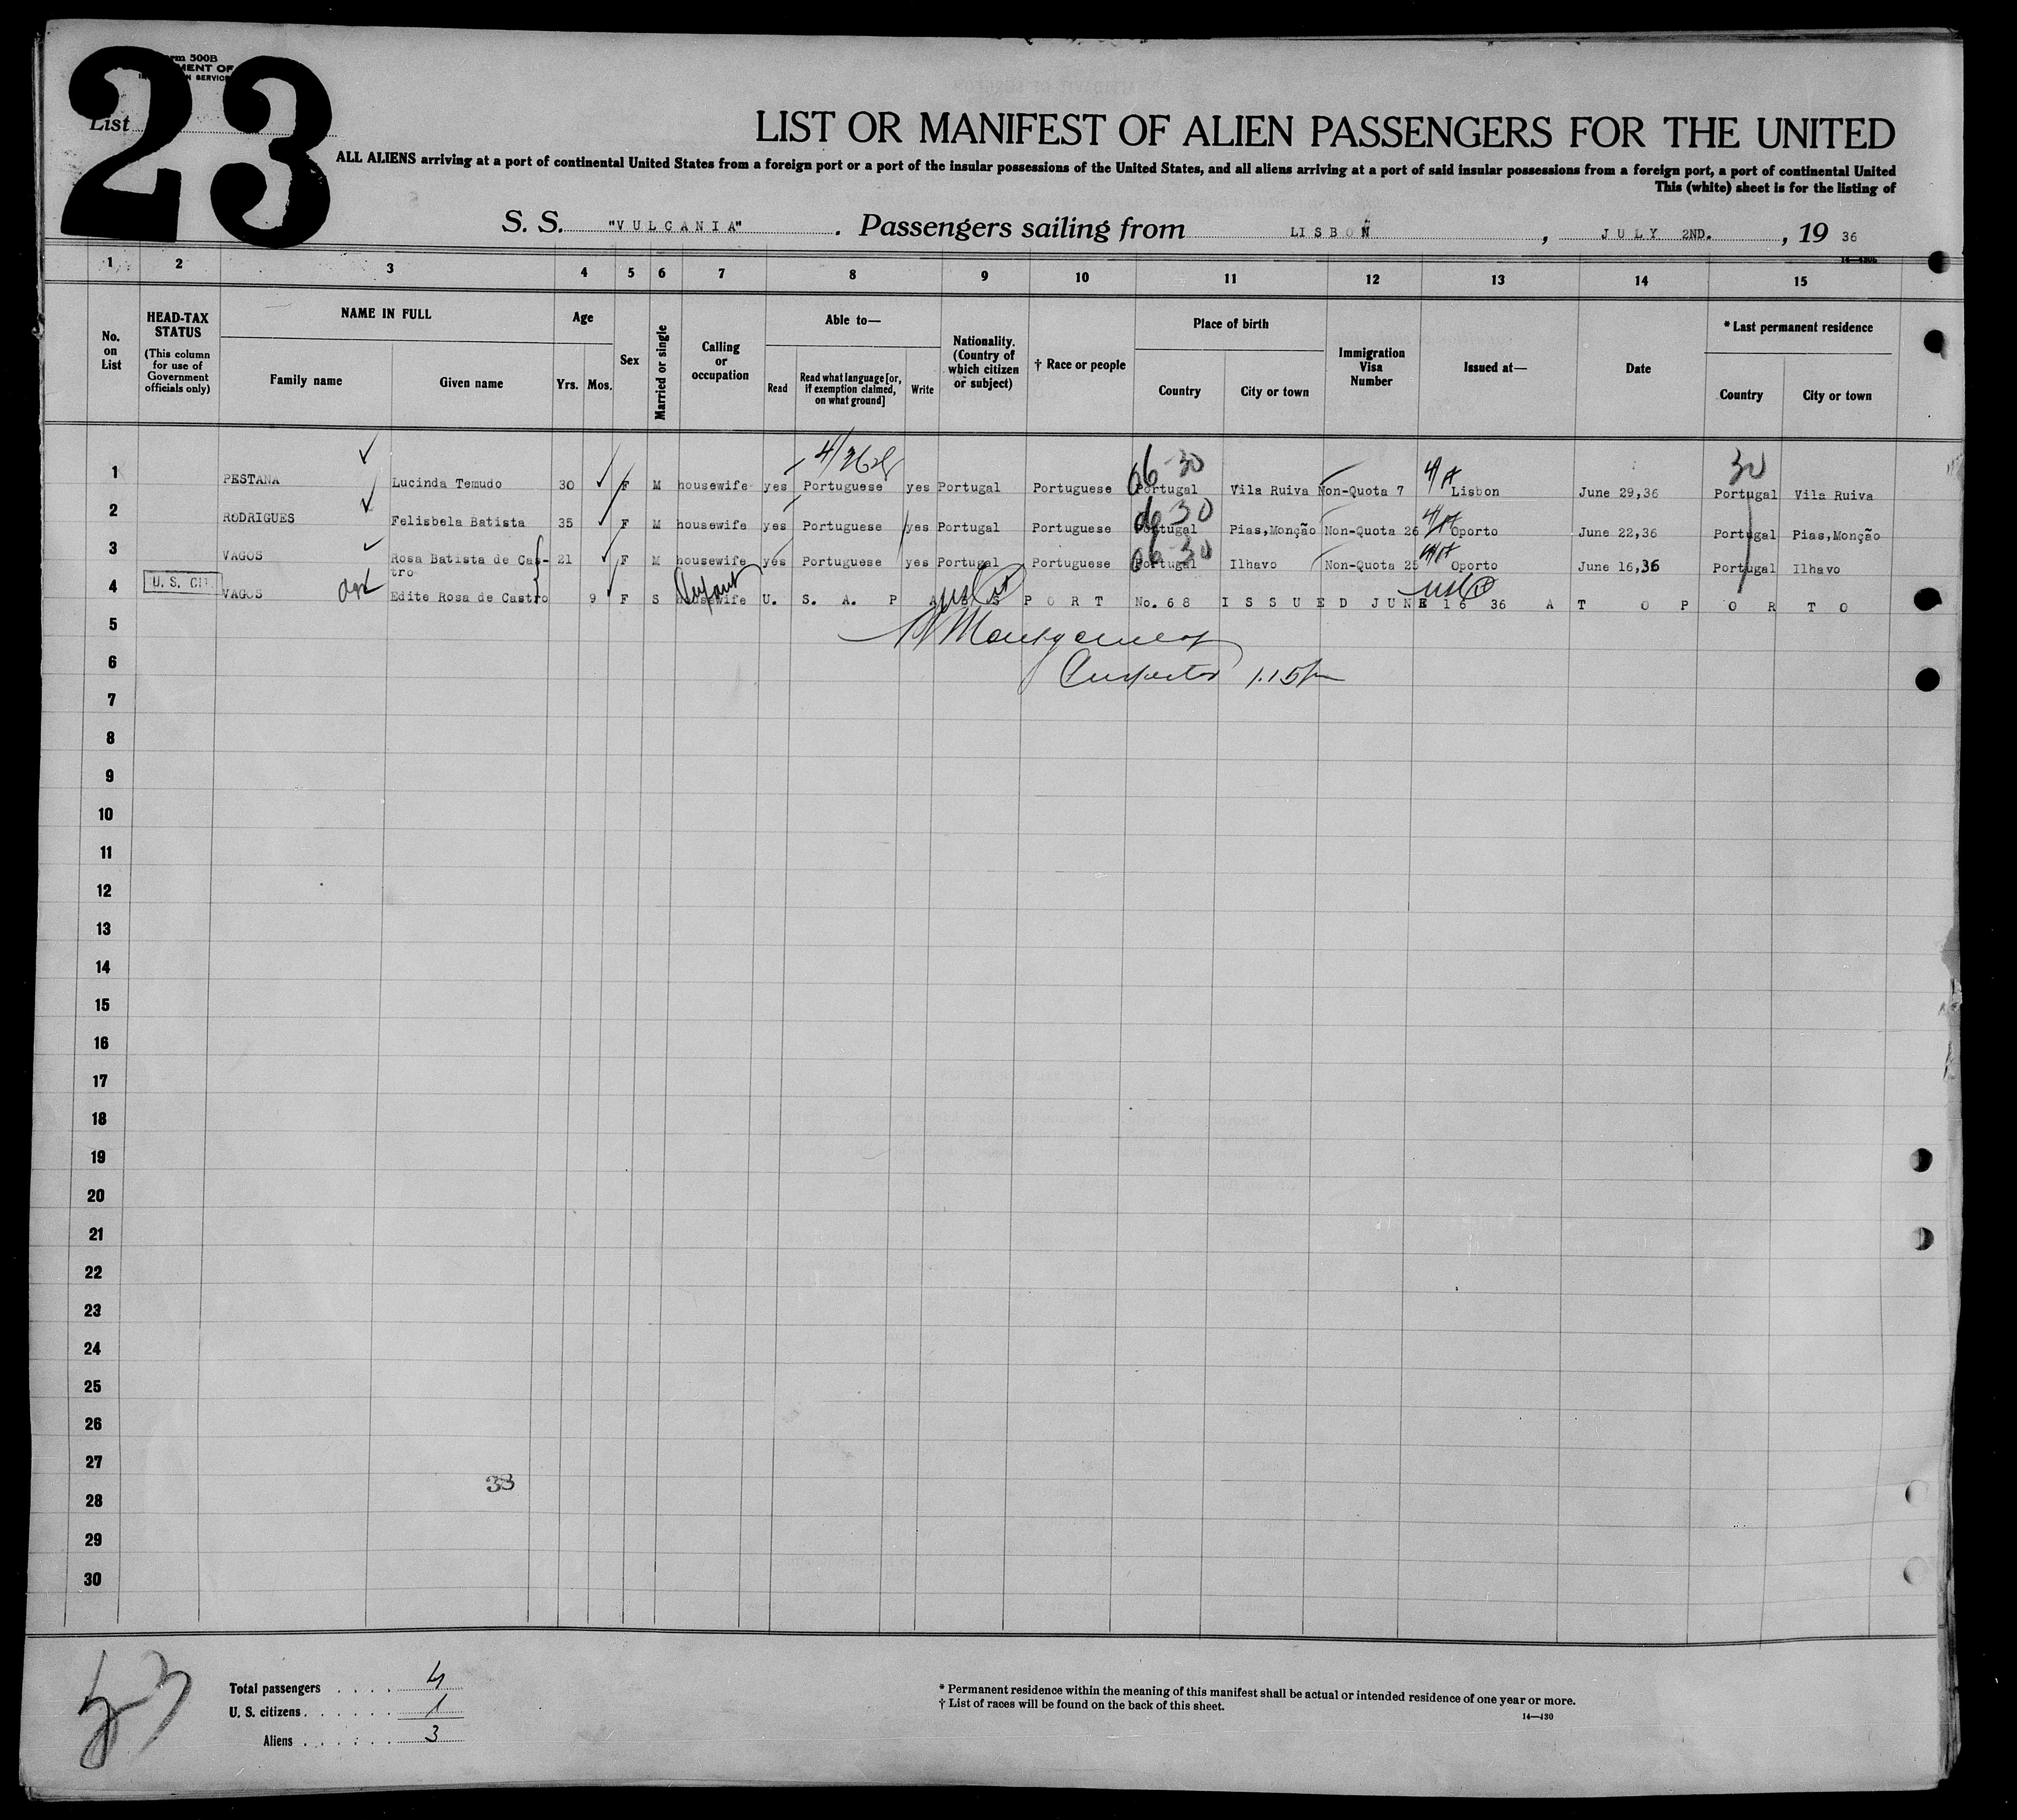 23
Form 500B
List
LIST OR MANIFEST OF ALIEN PASSENGERS FOR THE UNITED
ALL ALIENS arriving at a port of continental United States from a foreign port or a port of the insular possessions of the United States, and all aliens arriving at a port of said insular possessions from a foreign port, a port of continental United
This (white) sheet is for the listing of
S. S. "VULCANIA". Passengers sailing from LISBON, JULY 2ND., 19 36
1 2 3 4 5 6 7 8 9 10 11 12 13 14 15
No. on List
HEAD-TAX STATUS (This column for use of Government officials only)
NAME IN FULL
Family name Given name
Age
Yrs. Mos.
Sex
Married or single
Calling or occupation
Able to—
Read Read what language [or, if exemption claimed, on what ground] Write
Nationality. (Country of which citizen or subject)
† Race or people
Place of birth
Country City or town
Immigration Visa Number
Issued at—
Date
* Last permanent residence
Country City or town
1 PESTANA Lucinda Temudo 30 F M housewife yes Portuguese yes Portugal Portuguese Portugal Vila Ruiva Non-Quota 7 Lisbon June 29,36 Portugal Vila Ruiva
06-30 30
2 RODRIGUES Felisbela Batista 35 F M housewife yes Portuguese yes Portugal Portuguese Portugal Pias,Monção Non-Quota 26 Oporto June 22,36 Portugal Pias,Monção
06 30
3 VAGOS Rosa Batista de Cas-tro 21 F M housewife yes Portuguese yes Portugal Portuguese Portugal Ilhavo Non-Quota 25 Oporto June 16,36 Portugal Ilhavo
06-30
4 U. S. CIT VAGOS Edite Rosa de Castro 9 F S housewife Infant U. S. A. PASSPORT No.68 ISSUED JUNE 16 36 AT OPORTO
5 Montgomery
6 Inspector 1.15 pm
7
8
9
10
11
12
13
14
15
16
17
18
19
20
21
22
23
24
25
26
27
33
28
29
30
Total passengers . . . . 4
U. S. citizens . . . . . . 1
Aliens . . . . . . 3
* Permanent residence within the meaning of this manifest shall be actual or intended residence of one year or more.
† List of races will be found on the back of this sheet.
14—430